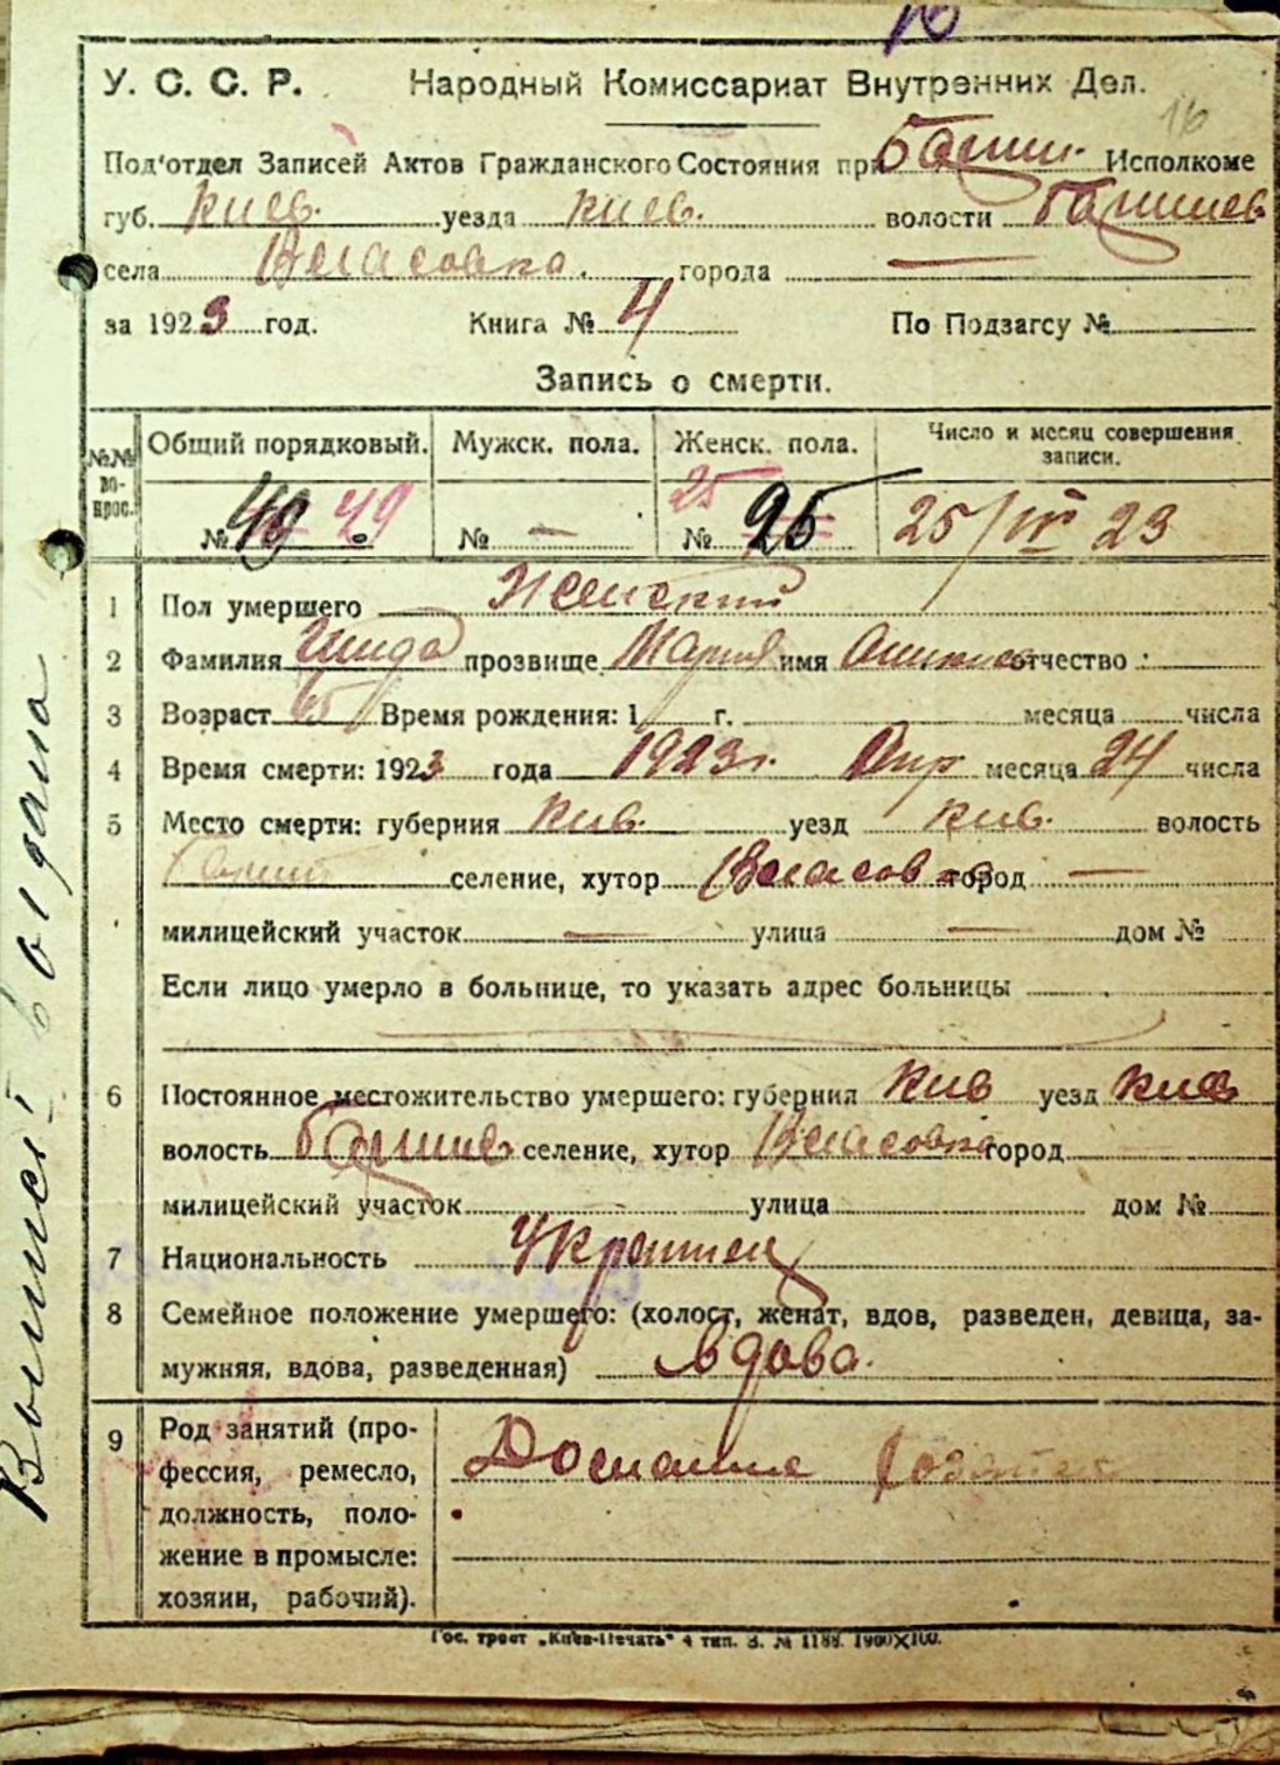 16
У. С. С. Р. Народный Комиссариат Внутренних Дел.
16
Под'отдел Записей Актов Гражданского Состояния при Исполкоме
губ. Киев. уезда Киев. волости
села города —
за 1923 год. Книга № 4 По Подзагсу №
Запись о смерти.
№№ вопрос. Общий порядковый. Мужск. пола. Женск. пола. Число и месяц совершения записи.
№ 49 49 № — 25 № 25 25/IV 23
1 Пол умершего Женский
2 Фамилия прозвище Мария имя отчество
3 Возраст 65 Время рождения: 1 г. месяца числа
4 Время смерти: 1923 года 1923 г. Апр месяца 24 числа
5 Место смерти: губерния Кив. уезд Кив. волость
селение, хутор город —
милицейский участок — улица — дом №
Если лицо умерло в больнице, то указать адрес больницы
6 Постоянное местожительство умершего: губерния Кив уезд Кив
волость селение, хутор город
милицейский участок улица дом №
7 Национальность
8 Семейное положение умершего: (холост, женат, вдов, разведен, девица, за-
мужняя, вдова, разведенная) вдова.
9 Род занятий (про-
фессия, ремесло,
должность, поло-
жение в промысле:
хозяин, рабочий).
Гос. трест „Киев-Печать" 4 тип. З. № 1188. 1900×100.
Выпись выдана